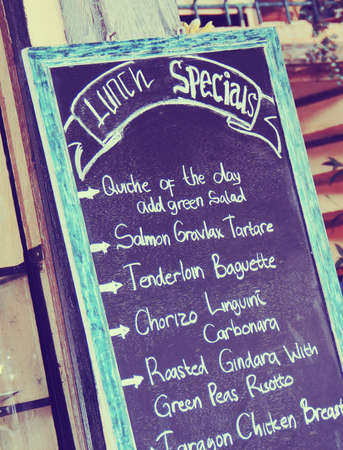 Lunch Specials
Quiche of the day
add green Salad
Salmon Gravlax Tartare
Tenderloin Baguette
Chorizo Linguini
Carbonara
Roasted Gindara With
Green Peas Risotto
Taragon Chicken Breast